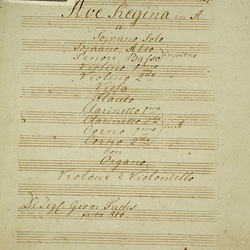 Ave Regina in A
a
Soprano Solo
Soprano, Alto
Tenore Basso
Violino 1mo
Violino 2do
Viola
Flauto
Clarinetto 1mo
Clarinetto 2do
in A
Corno 1mo
Corno 2do
con
Organo
Violone e Violoncello
Di Sigl: Giov: Fuchs